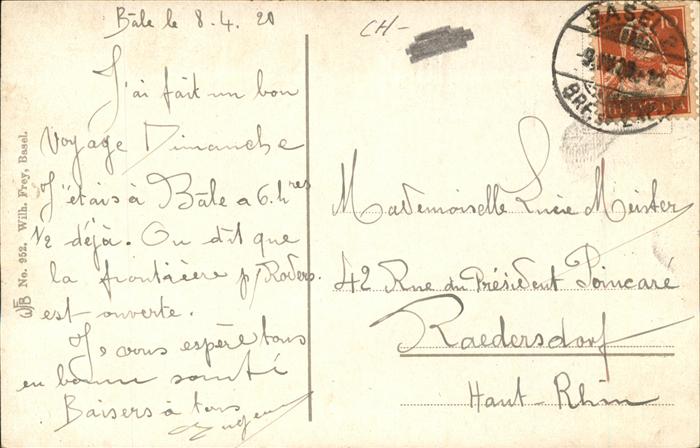 Bâle le 8.4.20
J'ai fait un bon
voyage Dimanche
J'étais à Bâle a 6.hres
1/2 déjà. On dit que
la frontière p/Roders.
est ouverte.
Je vous espère tous
en bonne santé
Baisers à tous
CH-
Mademoiselle Lucie Meister
42 Rue du Président Poincaré
Raedersdorf
Haut-Rhin
No. 952. Wilh. Frey, Basel.
BASEL 2
HELVETIA